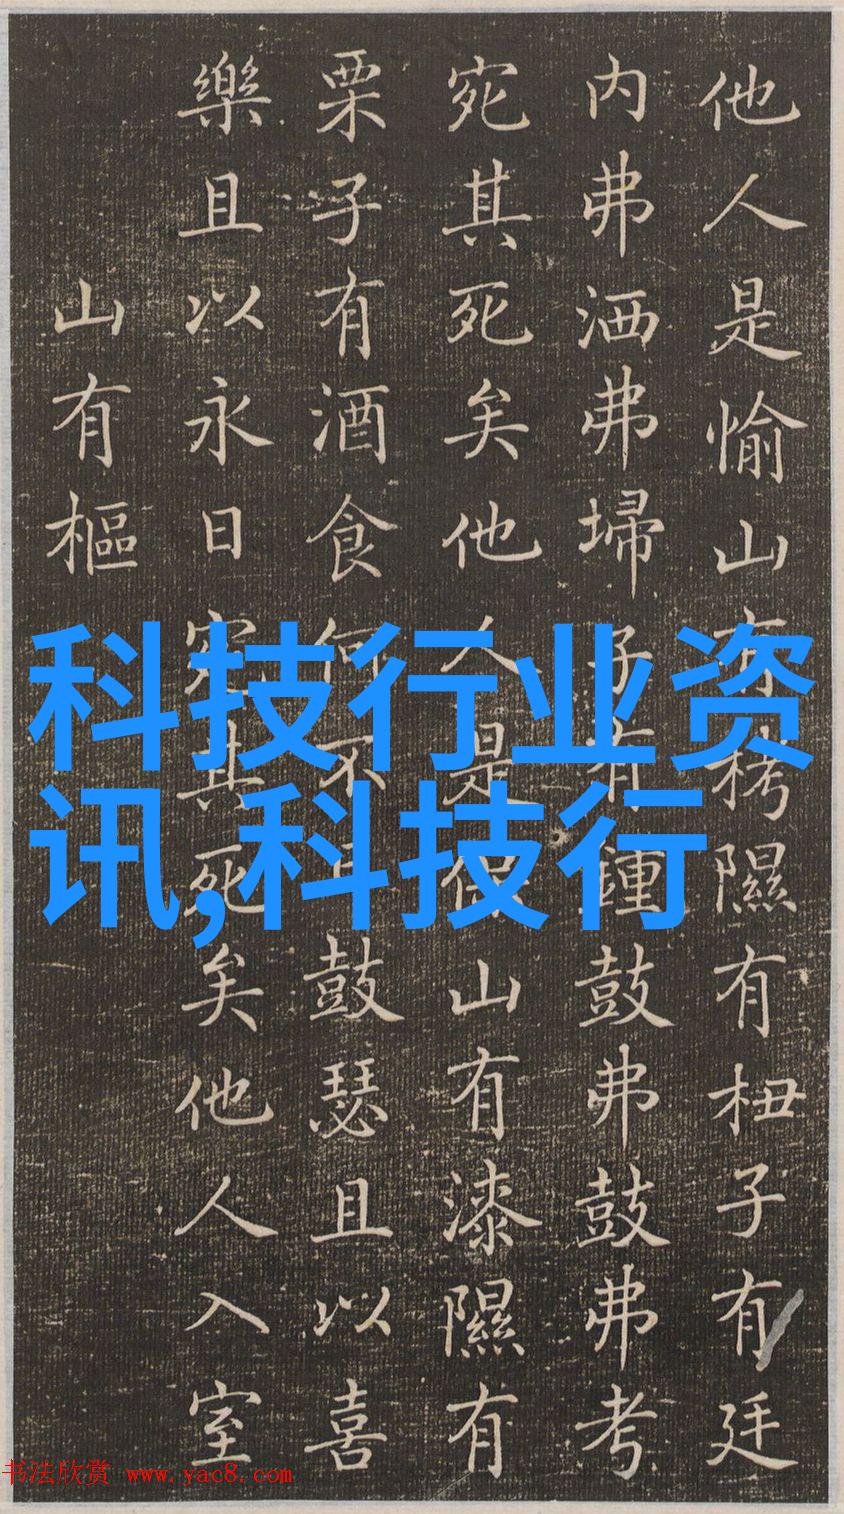 他人是愉山有栲隰有杻子有廷
内弗洒弗埽子有鍾鼓弗鼓弗考
宛其死矣他人是保山有漆隰有
栗子有酒食何不日鼓瑟且以喜
樂且以永日宛其死矣他人入室
山有樞
科技行业资
讯,科技行
书法欣赏 www.yac8.com